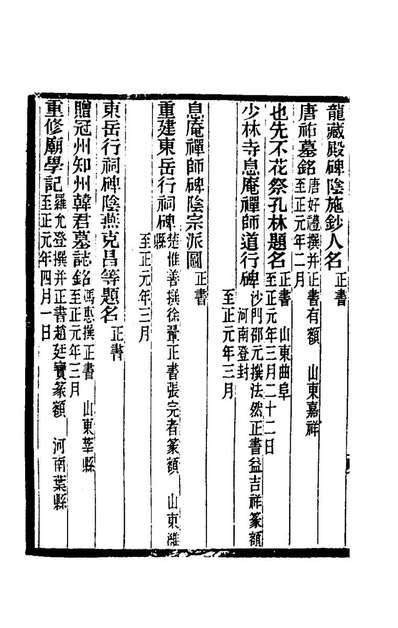 龍藏殿碑陰施鈔人名正書
唐祐墓銘唐好禮撰并正書有額　山東嘉祥
至正元年二月
也先不花祭孔林題名正書　山東曲阜
至正元年三月二十二日
少林寺息庵禪師道行碑沙門邵元撰法然正書益吉祥篆額
河南登封
至正元年三月
息庵禪師碑陰宗派圖正書
重建東岳行祠碑楚惟善撰徐鞏正書張完者篆額　山東濰
縣
至正元年三月
東岳行祠碑陰燕克昌等題名正書
贈冠州知州韓君墓誌銘馮惠撰正書　山東莘縣
至正元年三月
重修廟學記羅允登撰并正書趙廷寶篆額　河南葉縣
至正元年四月一日